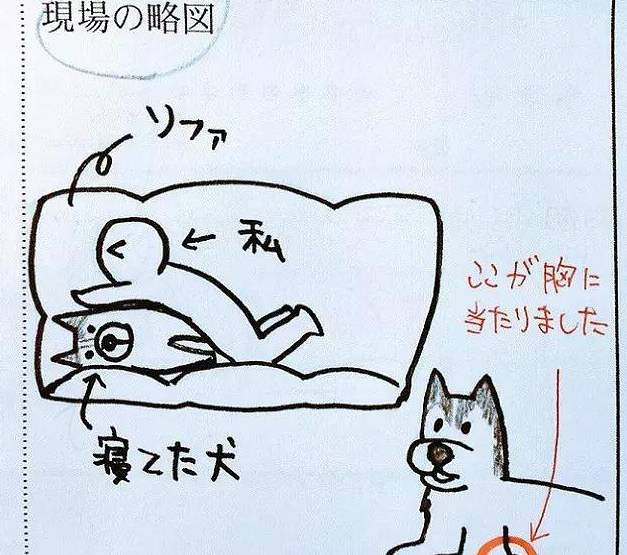 現場の略図
ソファ
私
ここが胸に
当たりました
寝てた犬